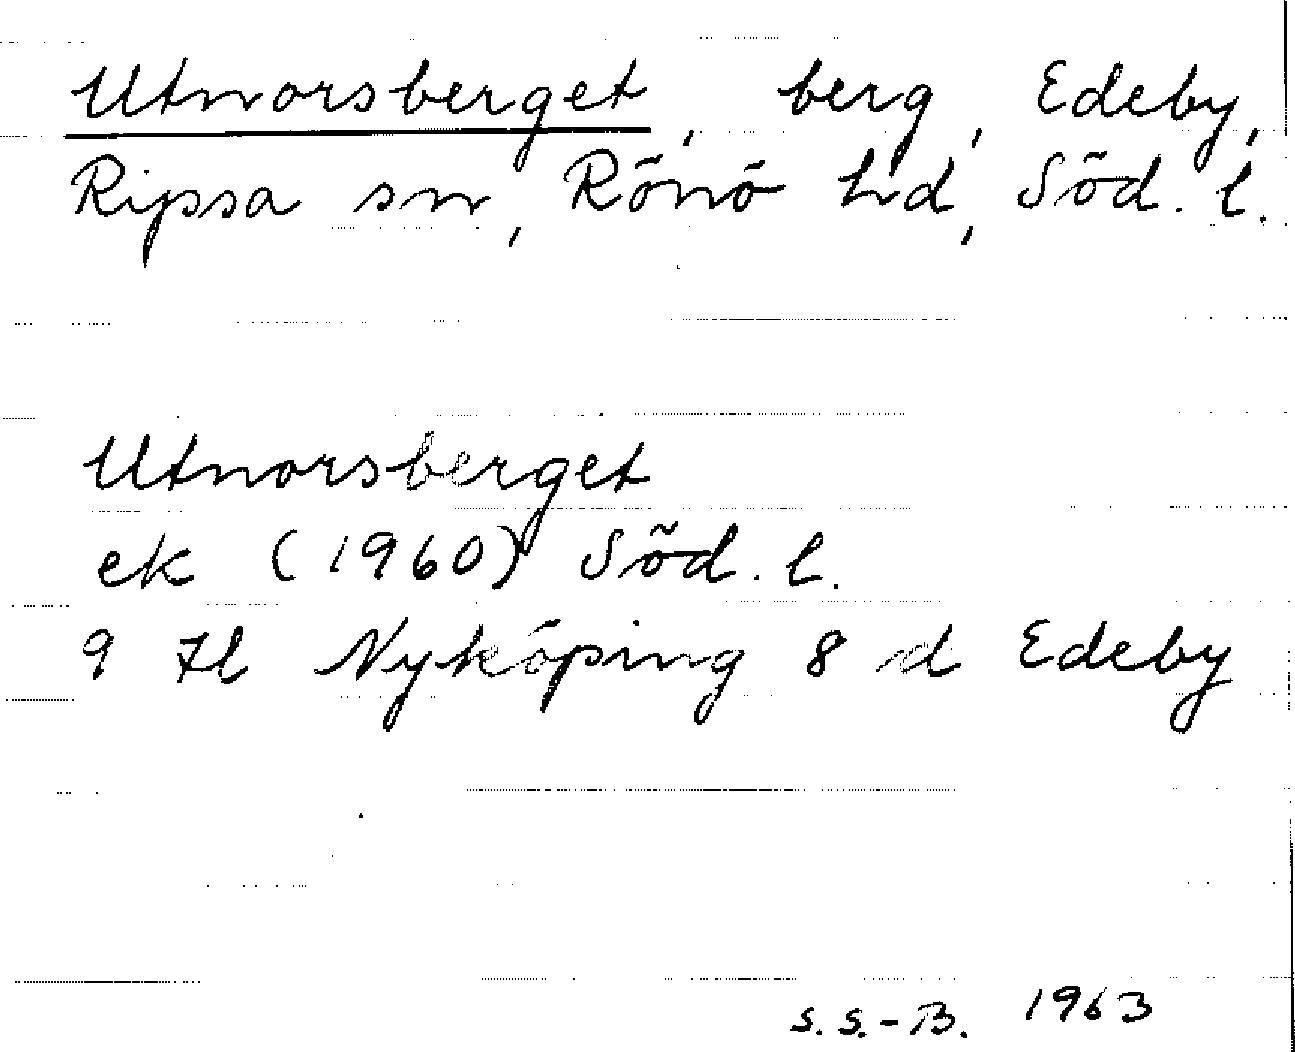 Utnorsberget, berg, Edeby,
Ripsa sn, Rönö hd, Söd. l.
Utnorsberget
ek (1960) Söd. l.
9 Hl Nyköping 8 d Edeby
S. S.-B. 1963